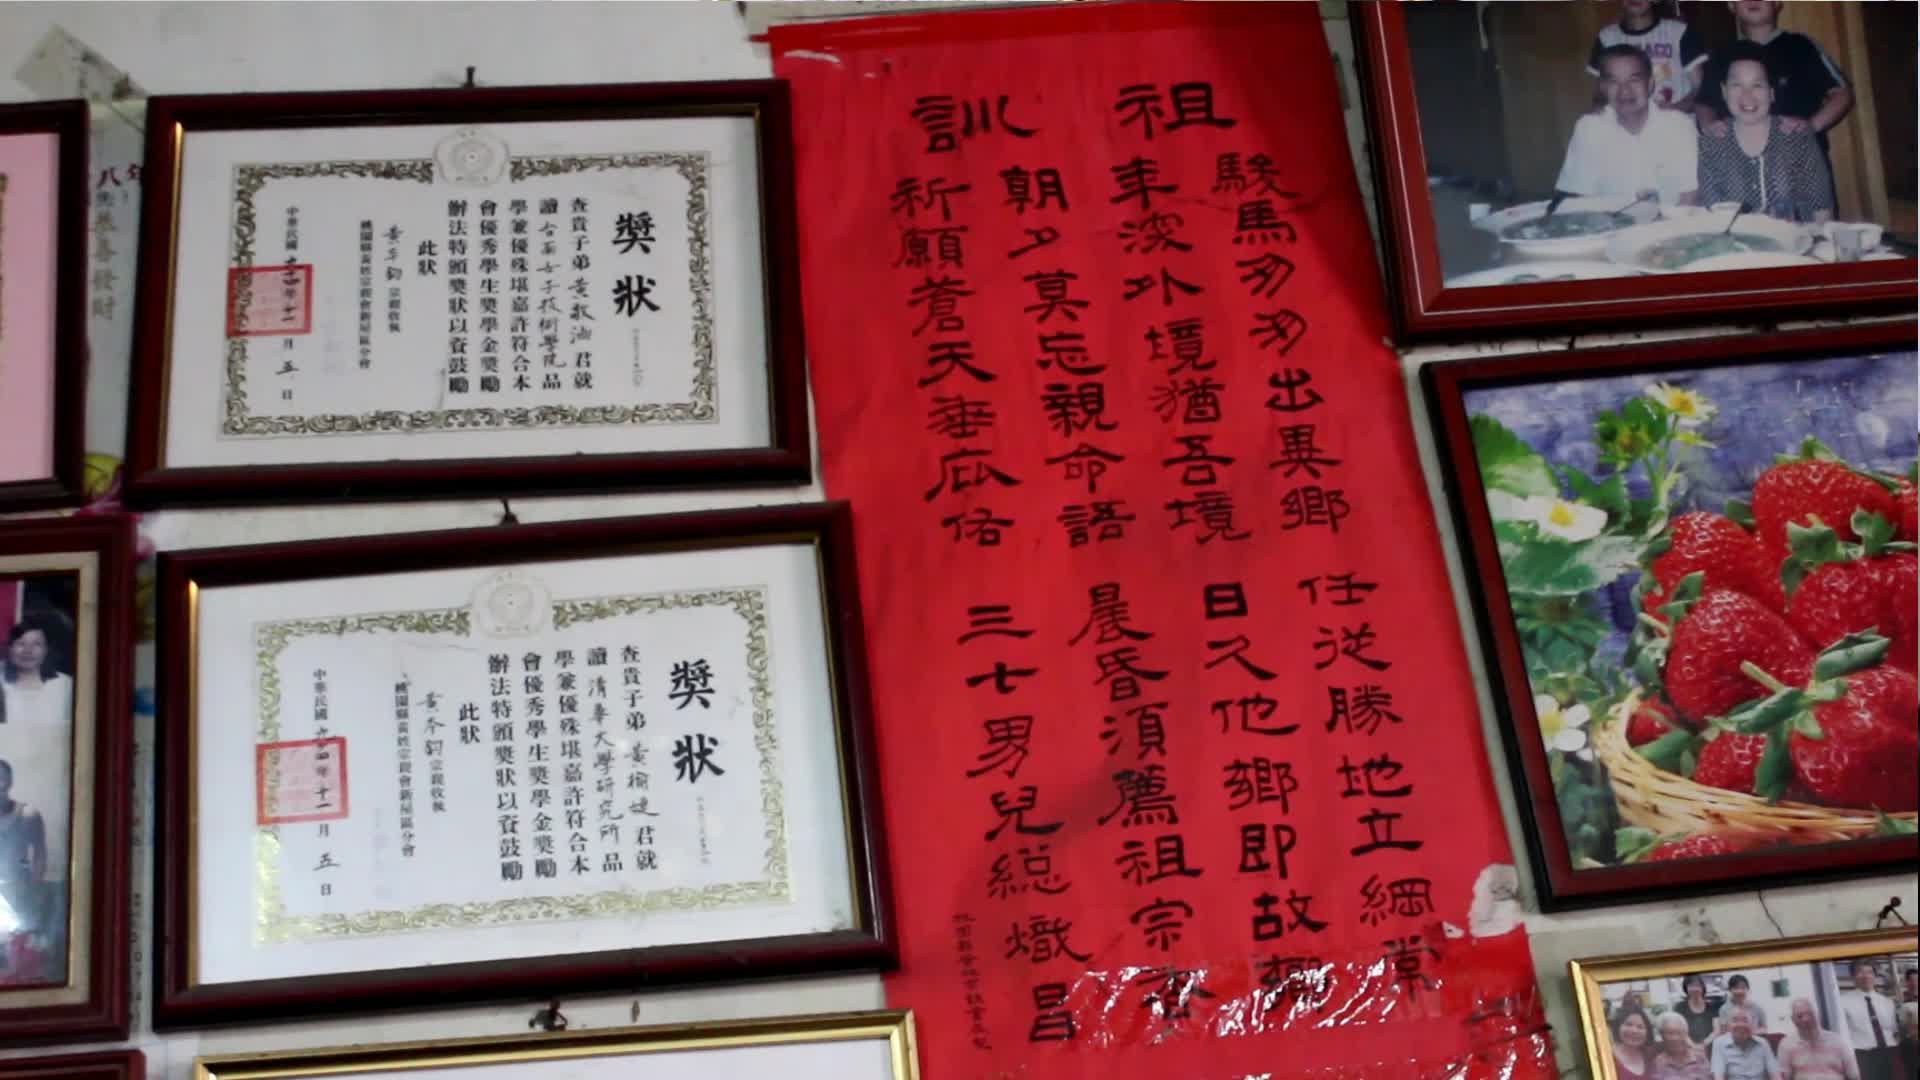 祖訓
駿馬匆匆出異鄉 任從勝地立綱常
年深外境猶吾境 日久他鄉即故鄉
朝夕莫忘親命語 晨昏須薦祖宗香
祈願蒼天垂庇佑 三七男兒總熾昌
獎狀
查貴子弟黃敍涵君就
讀台英女子技術學院品
學兼優殊堪嘉許符合本
會優秀學生獎學金獎勵
辦法特頒獎狀以資鼓勵
此狀
宗親收執
桃園縣黃姓宗親會新屋區分會
中華民國九十四年十一月五日
獎狀
查貴子弟黃榆婕君就
讀清華大學研究所品
學兼優殊堪嘉許符合本
會優秀學生獎學金獎勵
辦法特頒獎狀以資鼓勵
此狀
宗親收執
桃園縣黃姓宗親會新屋區分會
中華民國九十四年十一月五日
八年
恭喜發財